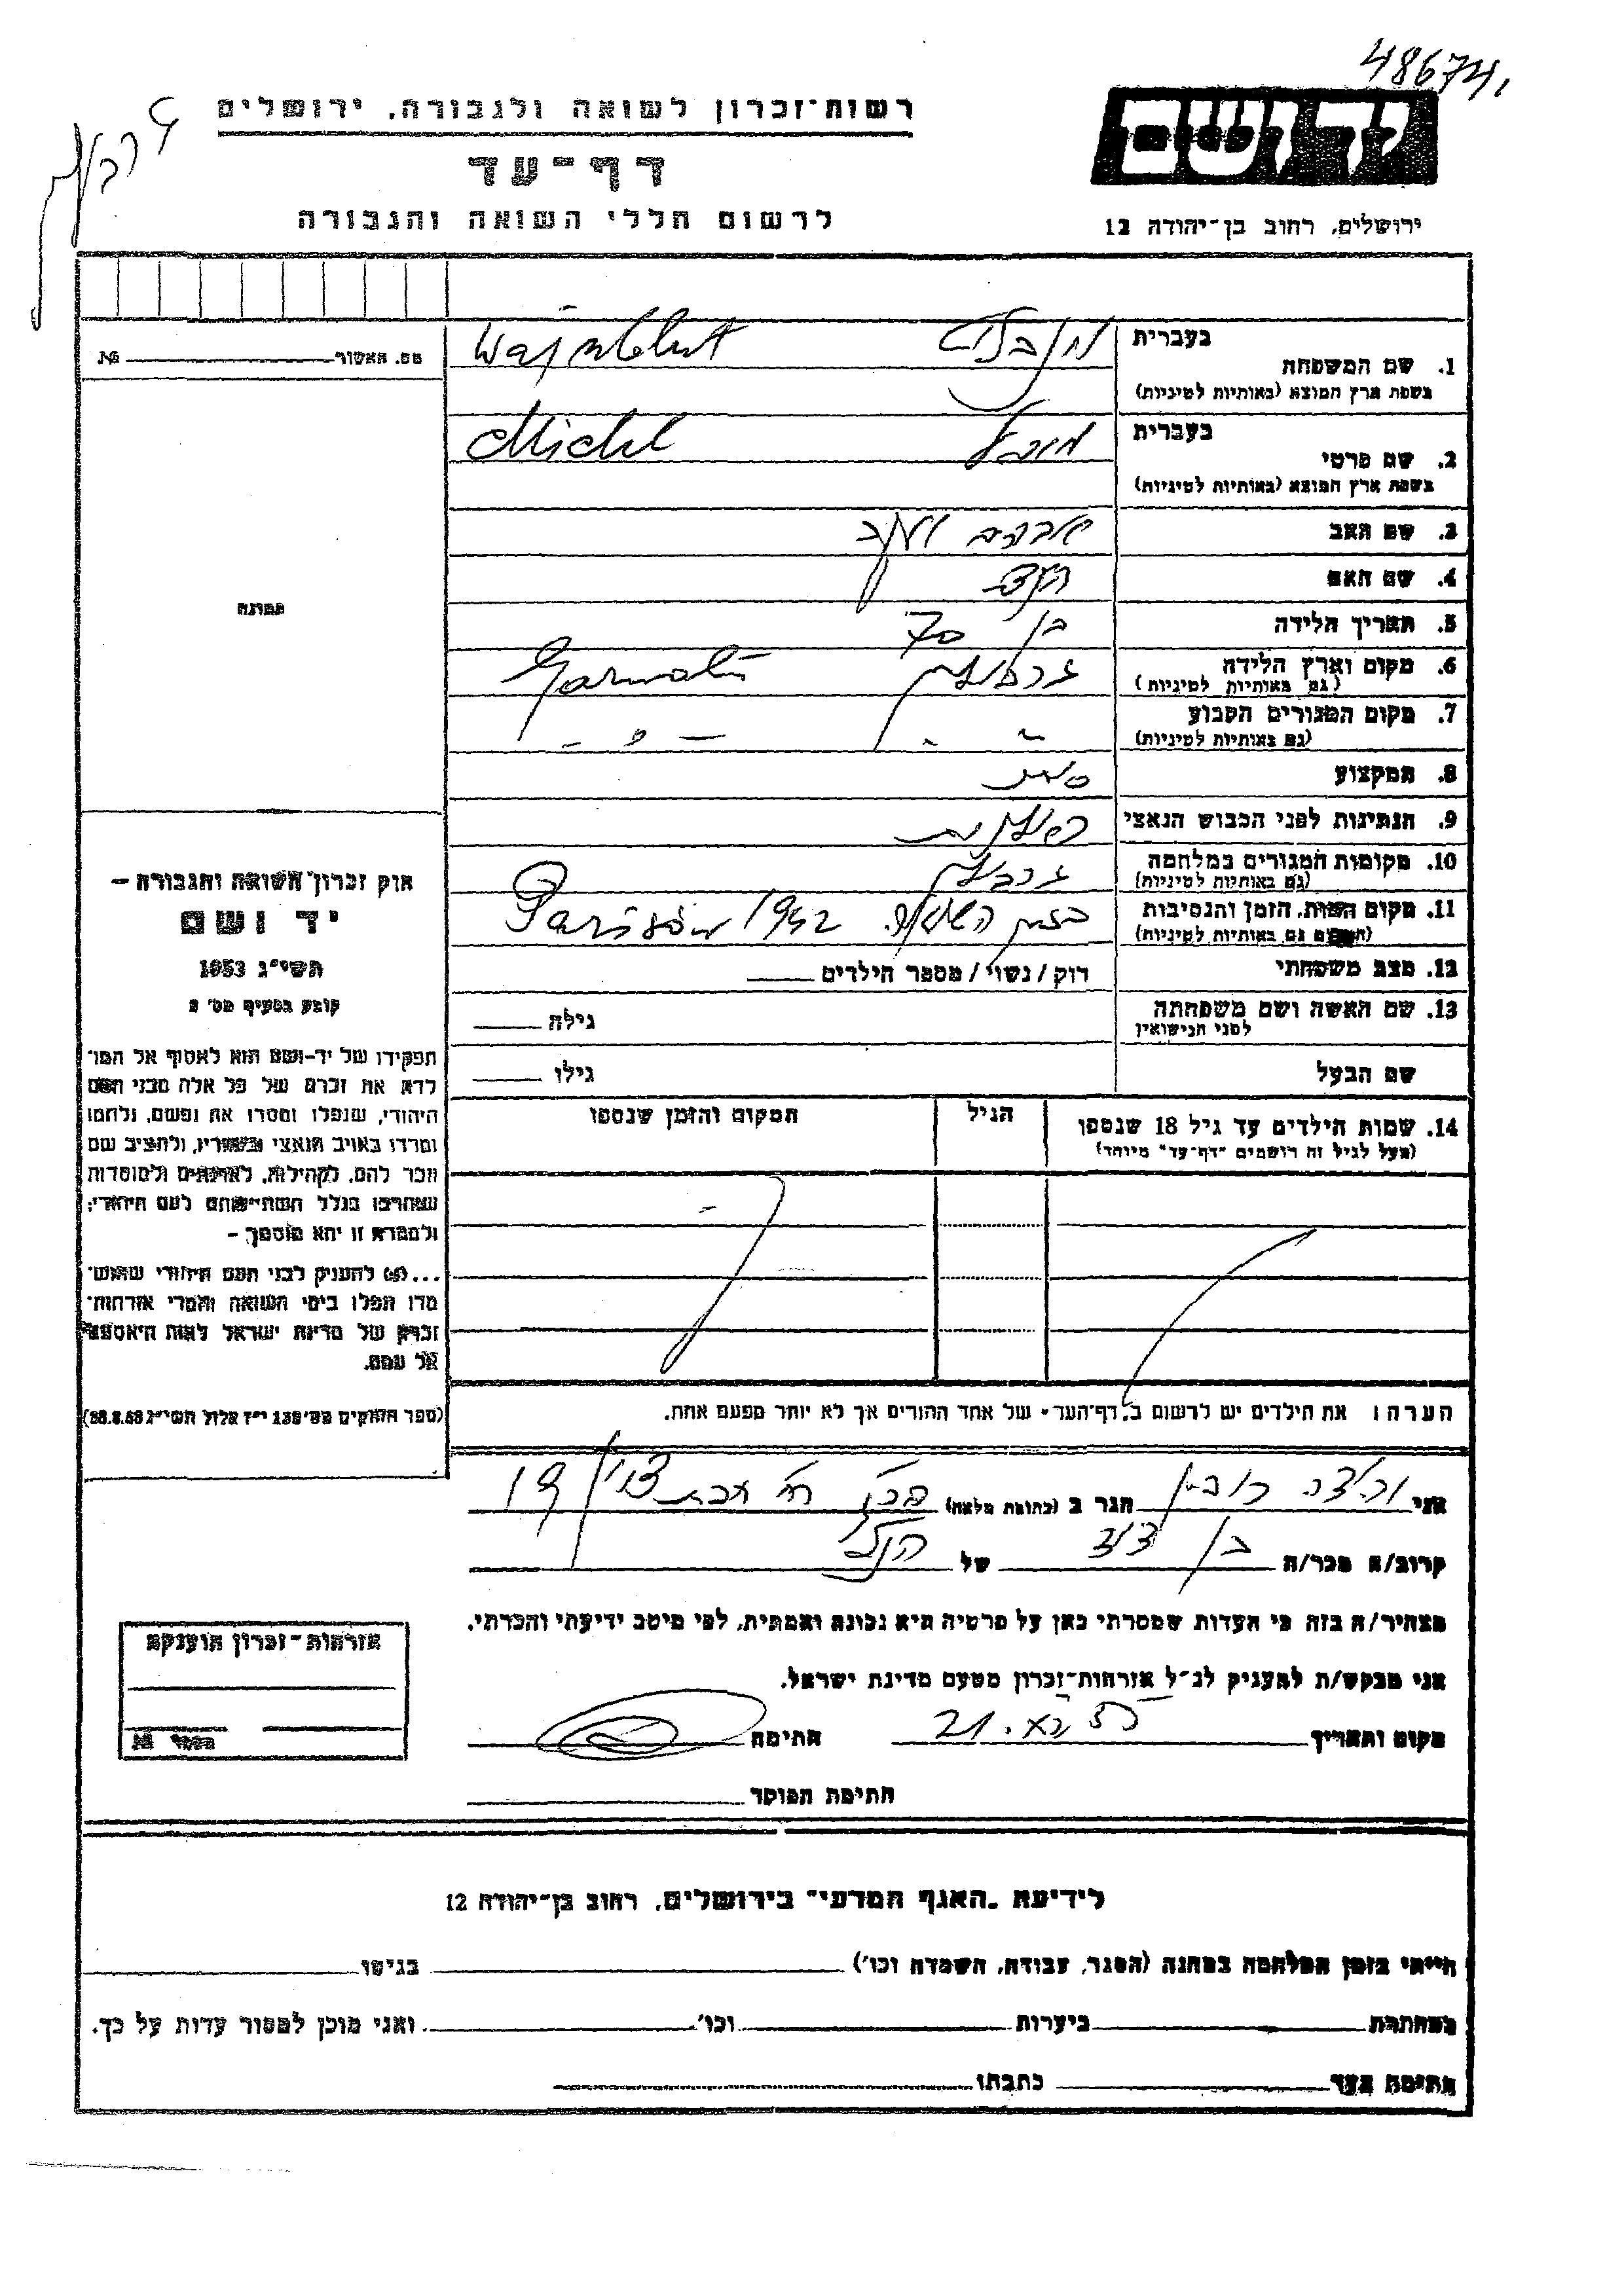 48674
רשות־זכרון לשואה ולגבורה, ירושלים
יד ושם
דף־עד
לרשום חללי השואה והגבורה
ירושלים, רחוב בן־יהודה 12
מס. האשור № 
בעברית
1. שם המשפחה
Wajnblut
בשפת ארץ המוצא (באותיות לטיניות)
בעברית
מיכל Michel
2. שם פרטי
בשפת ארץ המוצא (באותיות לטיניות)
3. שם האב אברהם יעקב
4. שם האם
5. תאריך הלידה בן 70
6. מקום וארץ הלידה גרבולין Garwolin
(גם באותיות לטיניות)
7. מקום המגורים הקבוע
(גם באותיות לטיניות)
8. המקצוע סוחר
9. הנתינות לפני הכבוש הנאצי
10. מקומות המגורים במלחמה גרבולין
(גם באותיות לטיניות)
11. מקום המות, הזמן והנסיבות בזמן Parisów 1942
גם באותיות לטיניות)
12. מצב משפחתי רוק / נשוי / מספר הילדים
13. שם האשה ושם משפחתה
לפני הנישואין
גילה
שם הבעל גילו
14. שמות הילדים עד גיל 18 שנספו
(מעל לגיל זה רושמים "דף־עד" מיוחד)
הגיל
המקום והזמן שנספו
הערה: את הילדים יש לרשום ב"דף־העד" של אחד ההורים אך לא יותר מפעם אחת.
תמונה
חוק זכרון השואה והגבורה —
יד ושם
תשי"ג 1953
קובע בסעיף מס' 2
תפקידו של יד־ושם הוא לאסוף אל המו־
לדת את זכרם של כל אלה מבני העם
היהודי, שנפלו ומסרו את נפשם, נלחמו
ומרדו באויב הנאצי ובעוזריו, ולהציב שם
וזכר להם, לקהילות, לארגונים ולמוסדות
שנחרבו בגלל השתייכותם לעם היהודי;
ולמטרה זו יהא מוסמך —
להעניק לבני העם היהודי שהוש־
מדו ונפלו בימי השואה והמרי אזרחות־
זכרון של מדינת ישראל לאות היאספם
אל עמם.
(ספר החוקים מס' 132 י"ז אלול תשי"ג 28.8.53)
אני רובין הגר ב (כתובת מלאה) 19
קרוב/ה מכר/ה בן דוד של הנ"ל
מצהיר/ה בזה כי העדות שמסרתי כאן על פרטיה היא נכונה ואמתית, לפי מיטב ידיעתי והכרתי.
אני מבקש/ת להעניק לנ"ל אזרחות־זכרון מטעם מדינת ישראל.
מקום ותאריך 21. חתימה
חתימת הפוקד
אזרחות־זכרון הוענקה
מספר №
לידיעת "האגף המדעי" בירושלים, רחוב בן־יהודה 12
הייתי בזמן המלחמה במחנה (הסגר, עבודה, השמדה וכו') בגיטו
במחתרת ביערות וכו' ואני מוכן למסור עדות על כך.
חתימת העד כתבתו